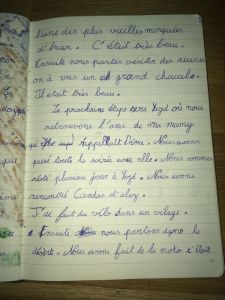 l'une des plus vieilles mosquées
d'Iran. C'était très beau.
Ensuite nous partes visiter des ruines
on à vus un grand chacale.
Il était très beau.
La prochaine étape sera Yazd où nous
retrouvons l'amie de ma mamy
qui s'appellait Dina. Nous avons
passé toute la soirée avec elle. Nous sommes
resté plusieur jour à Yazd. Nous avons
rencontré Candas et
J'ai fait du vélo dans un vilage.
Ensuite nous partons dans le
désert. Nous avons fait de la moto c'était